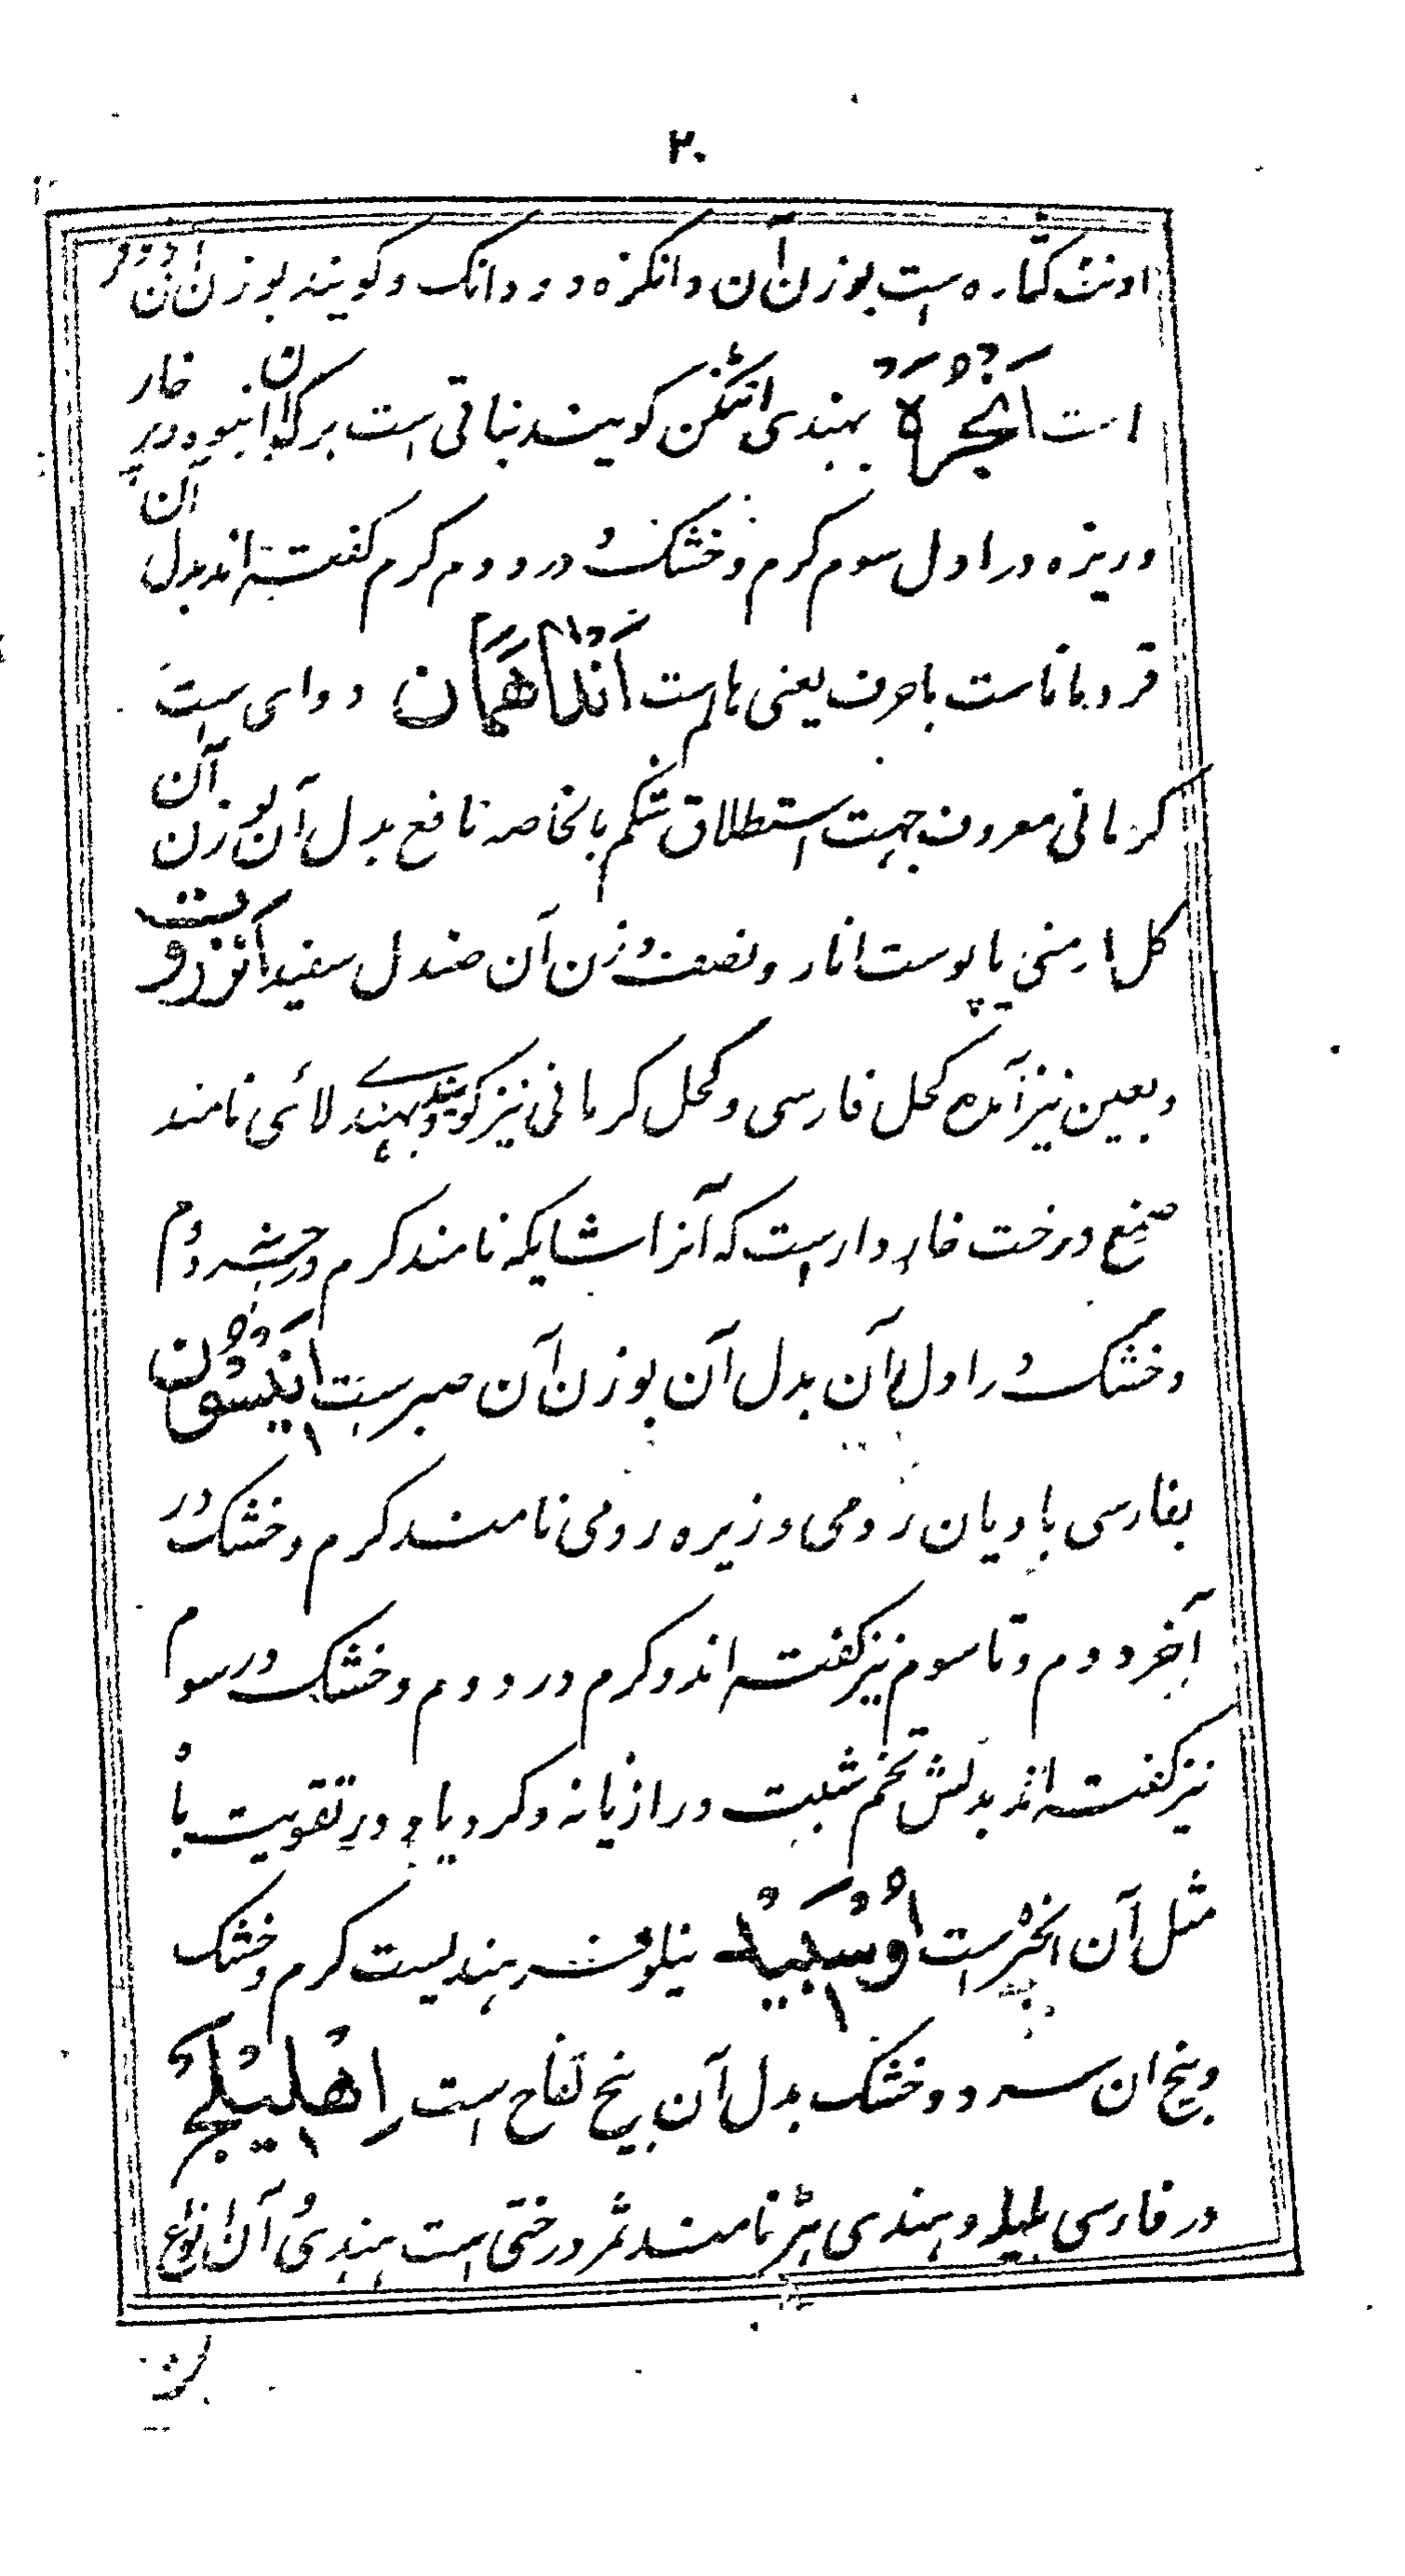 ۲۰
اونٹ کٹارہ است بوزن آن و انکزه دو دانک و کویند بوزن آن
است اَنْجُرَهْ بهندی اٹنگن کویند نباتی است برک آن انبوه و پر خار
و ریزه در اول سوم کرم و خشک و در دوم کرم کفته اند بدل آن
قردماناست با حرف یعنی هالم ست اَنْدَاهِمَان دوای ست
کرمانی معروف جهت استطلاق شکم بالخاصه نافع بدل آن بوزن آن
کل ارمنی یا پوست انار و نصف وزن آن صندل سفید اَنْزَرُوت
و بعین نیز آمده کحل فارسی و کحل کرمانی نیز کویند و بهندے لائی نامند
صمغ درخت خار دارست که آنرا شایکه نامند کرم در دوم
و خشک در اول آن بدل آن بوزن آن صبرست اَنِیْسُوْن
بفارسی بادیان رومی و زیره رومی نامند کرم و خشک در
آخر دوم و تا سوم نیز کفته اند و کرم در دوم و خشک در سوم
نیز کفته اند بدلش تخم شبت و رازیانه و کرویا و در تقویت باه
مثل آن انجره ست اُوْسَبِیْد نیلوفر هندیست کرم و خشک
و بیخ ان سرد و خشک بدل آن بیخ لفاح است اِهْلِیْلَجْ
در فارسی هلیله و هندی ہڑ نامند ثمر درختی است هندی و آن انواع